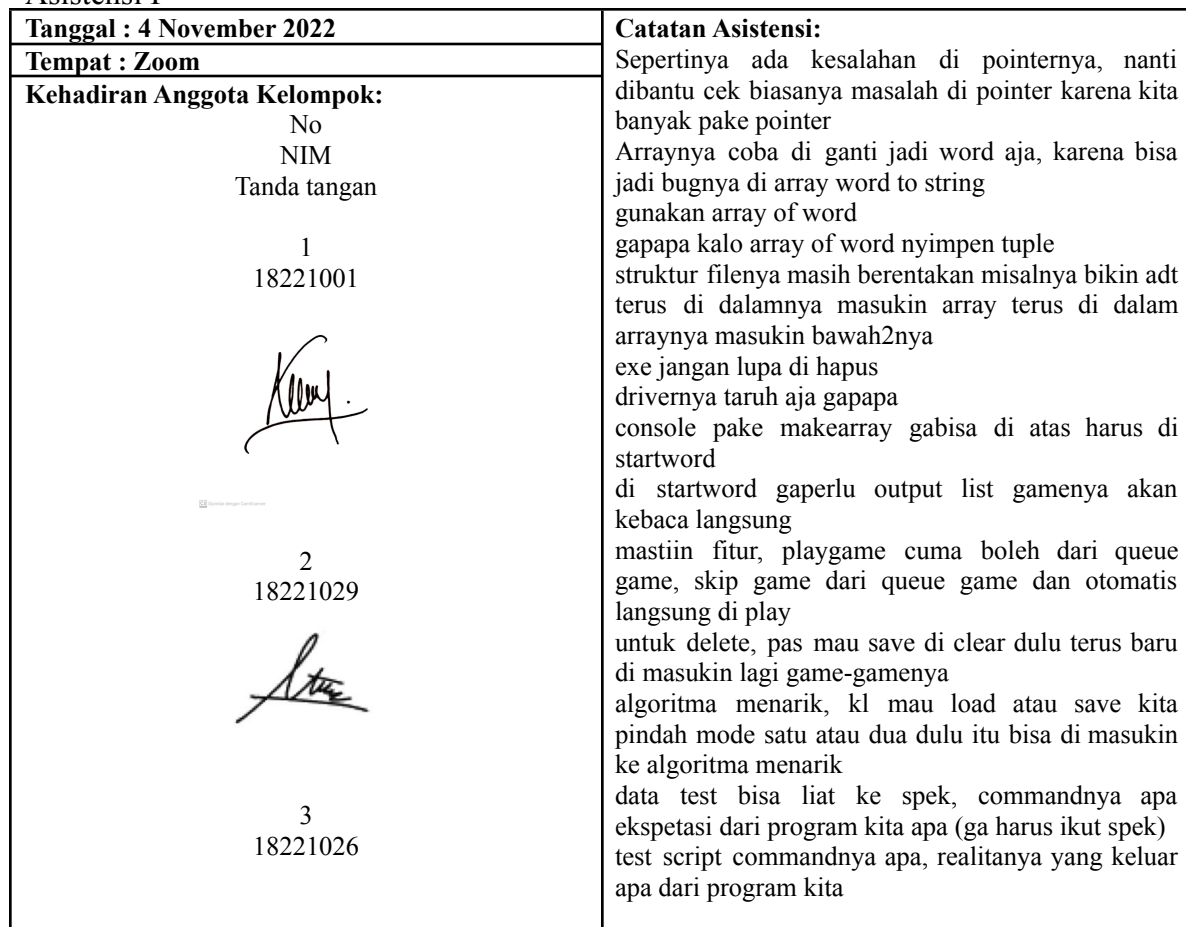 Asistensi 1
Tanggal : 4 November 2022
Tempat : Zoom
Kehadiran Anggota Kelompok:
No
NIM
Tanda tangan
1
18221001
2
18221029
3
18221026
Catatan Asistensi:
Sepertinya ada kesalahan di pointernya, nanti
dibantu cek biasanya masalah di pointer karena kita
banyak pake pointer
Arraynya coba di ganti jadi word aja, karena bisa
jadi bugnya di array word to string
gunakan array of word
gapapa kalo array of word nyimpen tuple
struktur filenya masih berentakan misalnya bikin adt
terus di dalamnya masukin array terus di dalam
arraynya masukin bawah2nya
exe jangan lupa di hapus
drivernya taruh aja gapapa
console pake makearray gabisa di atas harus di
startword
di startword gaperlu output list gamenya akan
kebaca langsung
mastiin fitur, playgame cuma boleh dari queue
game, skip game dari queue game dan otomatis
langsung di play
untuk delete, pas mau save di clear dulu terus baru
di masukin lagi game-gamenya
algoritma menarik, kl mau load atau save kita
pindah mode satu atau dua dulu itu bisa di masukin
ke algoritma menarik
data test bisa liat ke spek, commandnya apa
ekspetasi dari program kita apa (ga harus ikut spek)
test script commandnya apa, realitanya yang keluar
apa dari program kita